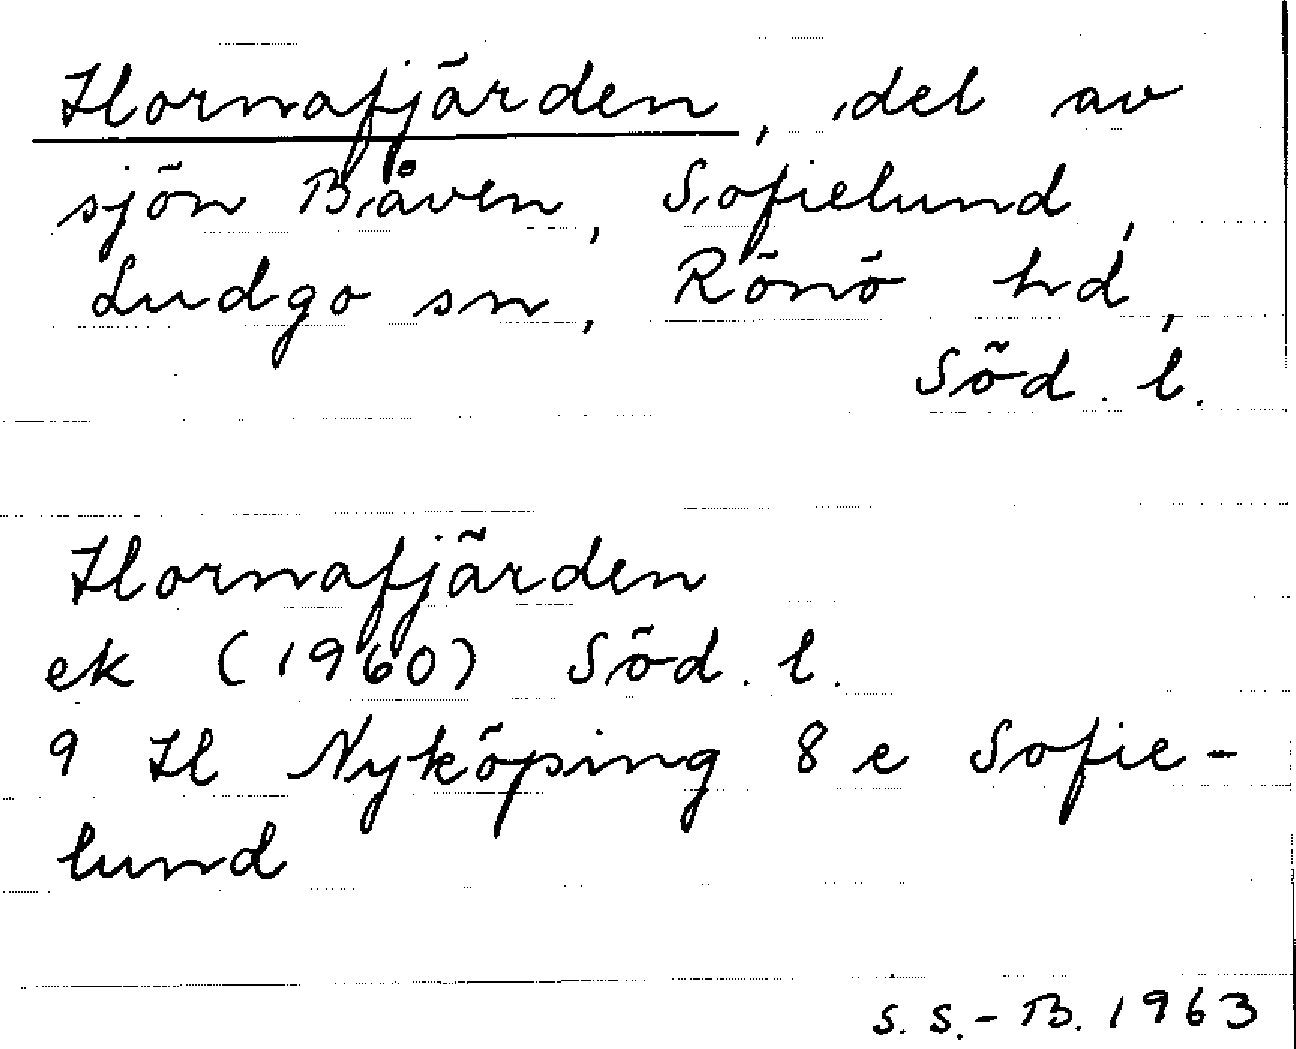 Hornafjärden, del av
sjön Båven, Sofielund,
Ludgo sn, Rönö hd,
Söd. l.
Hornafjärden
ek (1960) Söd. l.
9 H Nyköping 8 e Sofie-
lund
S. S.-B. 1963